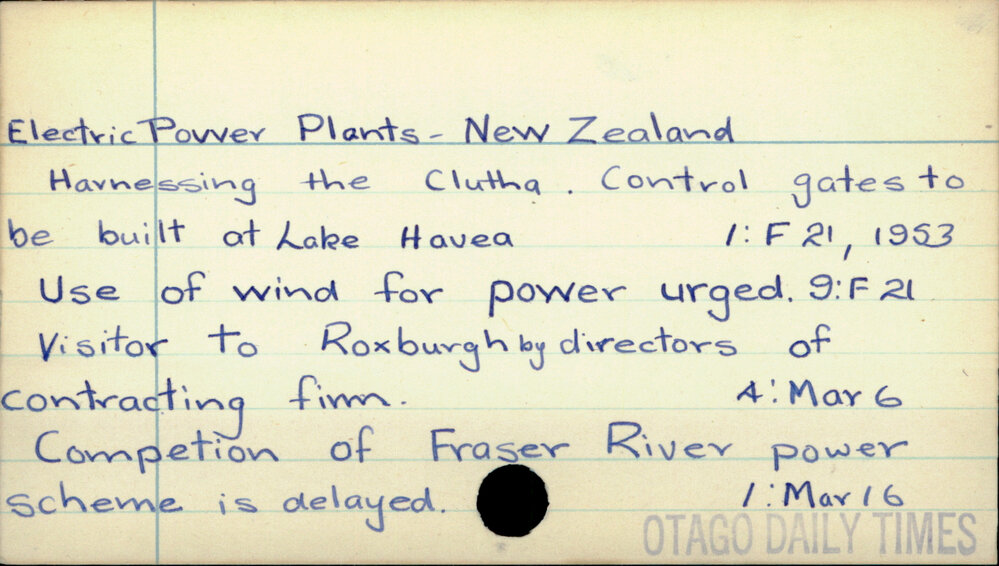 Electric Power Plants - New Zealand
Harnessing the Clutha. Control gates to
be built at Lake Havea 1: F 21, 1953
Use of wind for power urged. 9: F 21
Visitor to Roxburgh by directors of
contracting firm. 4: Mar 6
Competion of Fraser River power
scheme is delayed. 1: Mar 16
OTAGO DAILY TIMES